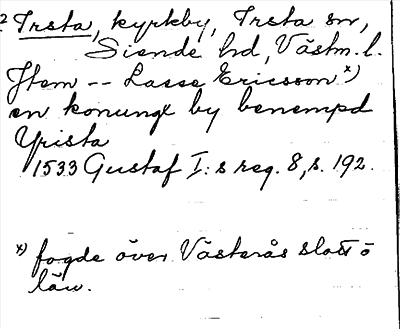 2 Irsta, kyrkby, Irsta sn,
Siende hd, Västm. l.
Item -- Lasse Ericsson x)
en konungx by benempd
Yrista
1533 Gustaf I:s reg. 8, s. 192.
x) fogde över Västerås slott o
län.